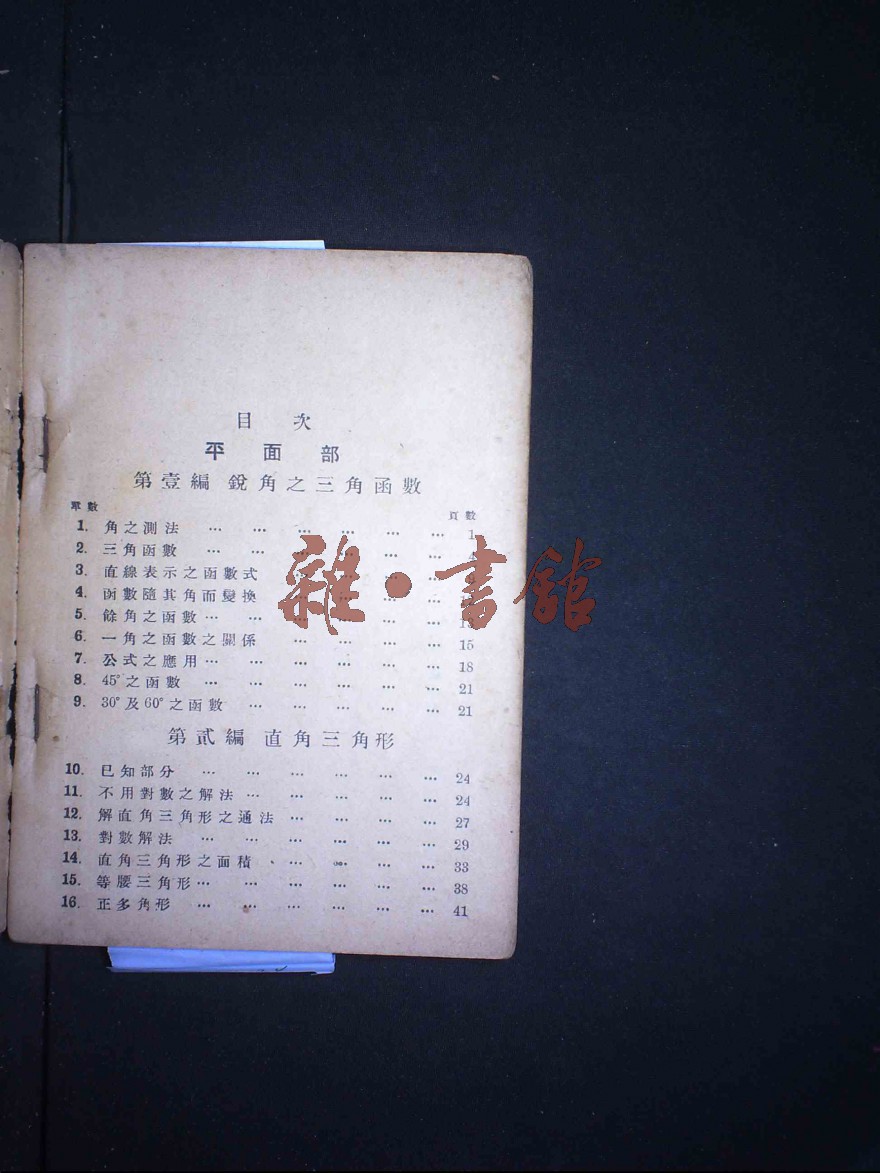 目 次
平 面 部
第壹編 銳角之三角函數
章數 頁數
1. 角之測法 … … … … … … 1
2. 三角函數 … … … … … … 4
3. 直線表示之函數式 … … … …
4. 函數隨其角而變換 … … … …
5. 餘角之函數 … … … … … …
6. 一角之函數之關係 … … … … 15
7. 公式之應用 … … … … … … 18
8. 45°之函數 … … … … … … 21
9. 30°及60°之函數 … … … … … 21
第貳編 直角三角形
10. 已知部分 … … … … … … 24
11. 不用對數之解法 … … … … … 24
12. 解直角三角形之通法 … … … … 27
13. 對數解法 … … … … … … 29
14. 直角三角形之面積 … … … … 33
15. 等腰三角形 … … … … … … 38
16. 正多角形 … … … … … … 41
雜·書館